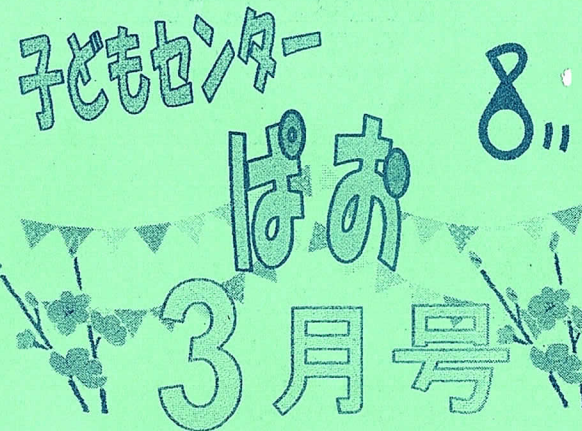 子どもセンター
ぱお
3月号